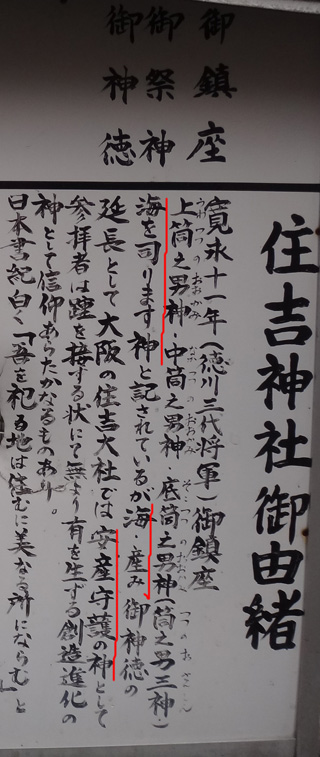 住吉神社御由緒
御鎮座
寛永十一年(徳川三代将軍)御鎮座
御祭神
上筒之男神・中筒之男神・底筒之男神(筒之男三神)
御神徳
海を司ります神と記されているが海・産み御神徳の
延長として大阪の住吉大社では安産守護の神として
参拝者は踵を接する状にて無より有を生ずる創造進化の
神として信仰あらたかなるものあり。
日本書紀曰く「吾を祀る地は住むに美なる所にならむ」と